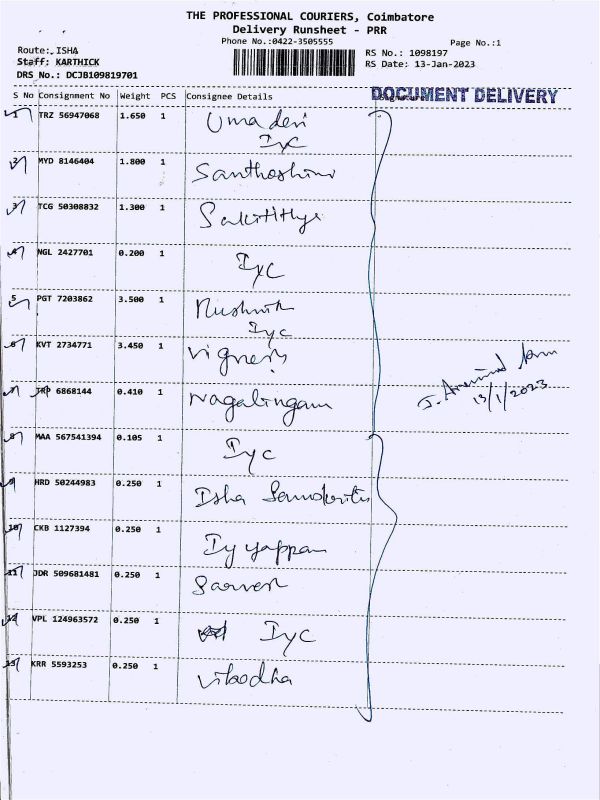 THE PROFESSIONAL COURIERS, Coimbatore
Delivery Runsheet - PRR
Phone No.:0422-3505555
Page No.:1
Route: ISHA
Staff: KARTHICK
DRS No.: DCJB109819701
RS No.: 1098197
RS Date: 13-Jan-2023
S No Consignment No Weight PCS Consignee Details
DOCUMENT DELIVERY
1 TRZ 56947068 1.650 1 Umadevi
IYC
2 MYD 8146404 1.800 1 Santhoshini
3 TCG 50308832 1.300 1
4 NGL 2427701 0.200 1 IYC
5 PGT 7203862 3.500 1
IYC
6 KVT 2734771 3.450 1 Vignesh
7 TRP 6868144 0.410 1 Nagalingam
8 MAA 567541394 0.105 1 IYC
9 HRD 50244983 0.250 1 Isha Samskriti
10 CKB 1127394 0.250 1 Iyyappan
11 JDR 509681481 0.250 1 Sarvesh
12 VPL 124963572 0.250 1 IYC
13 KRR 5593253 0.250 1 Vibodha
13/1/2023